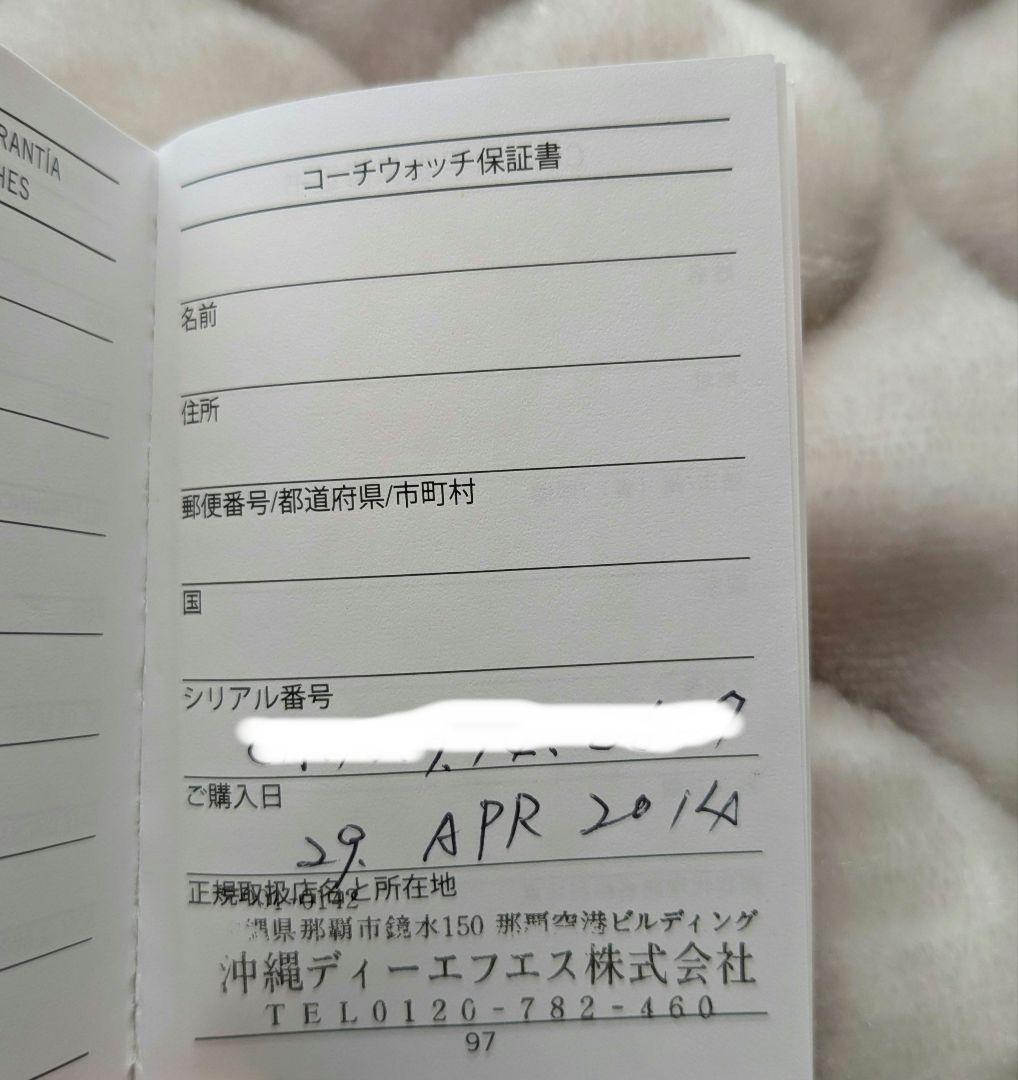 RANTÍA
HES
コーチウォッチ保証書
名前
住所
郵便番号/都道府県/市町村
国
シリアル番号
ご購入日
29. APR 2014
正規取扱店名と所在地
0142
縄県那覇市鏡水150 那覇空港ビルディング
沖縄ディーエフエス株式会社
TEL0120-782-460
97